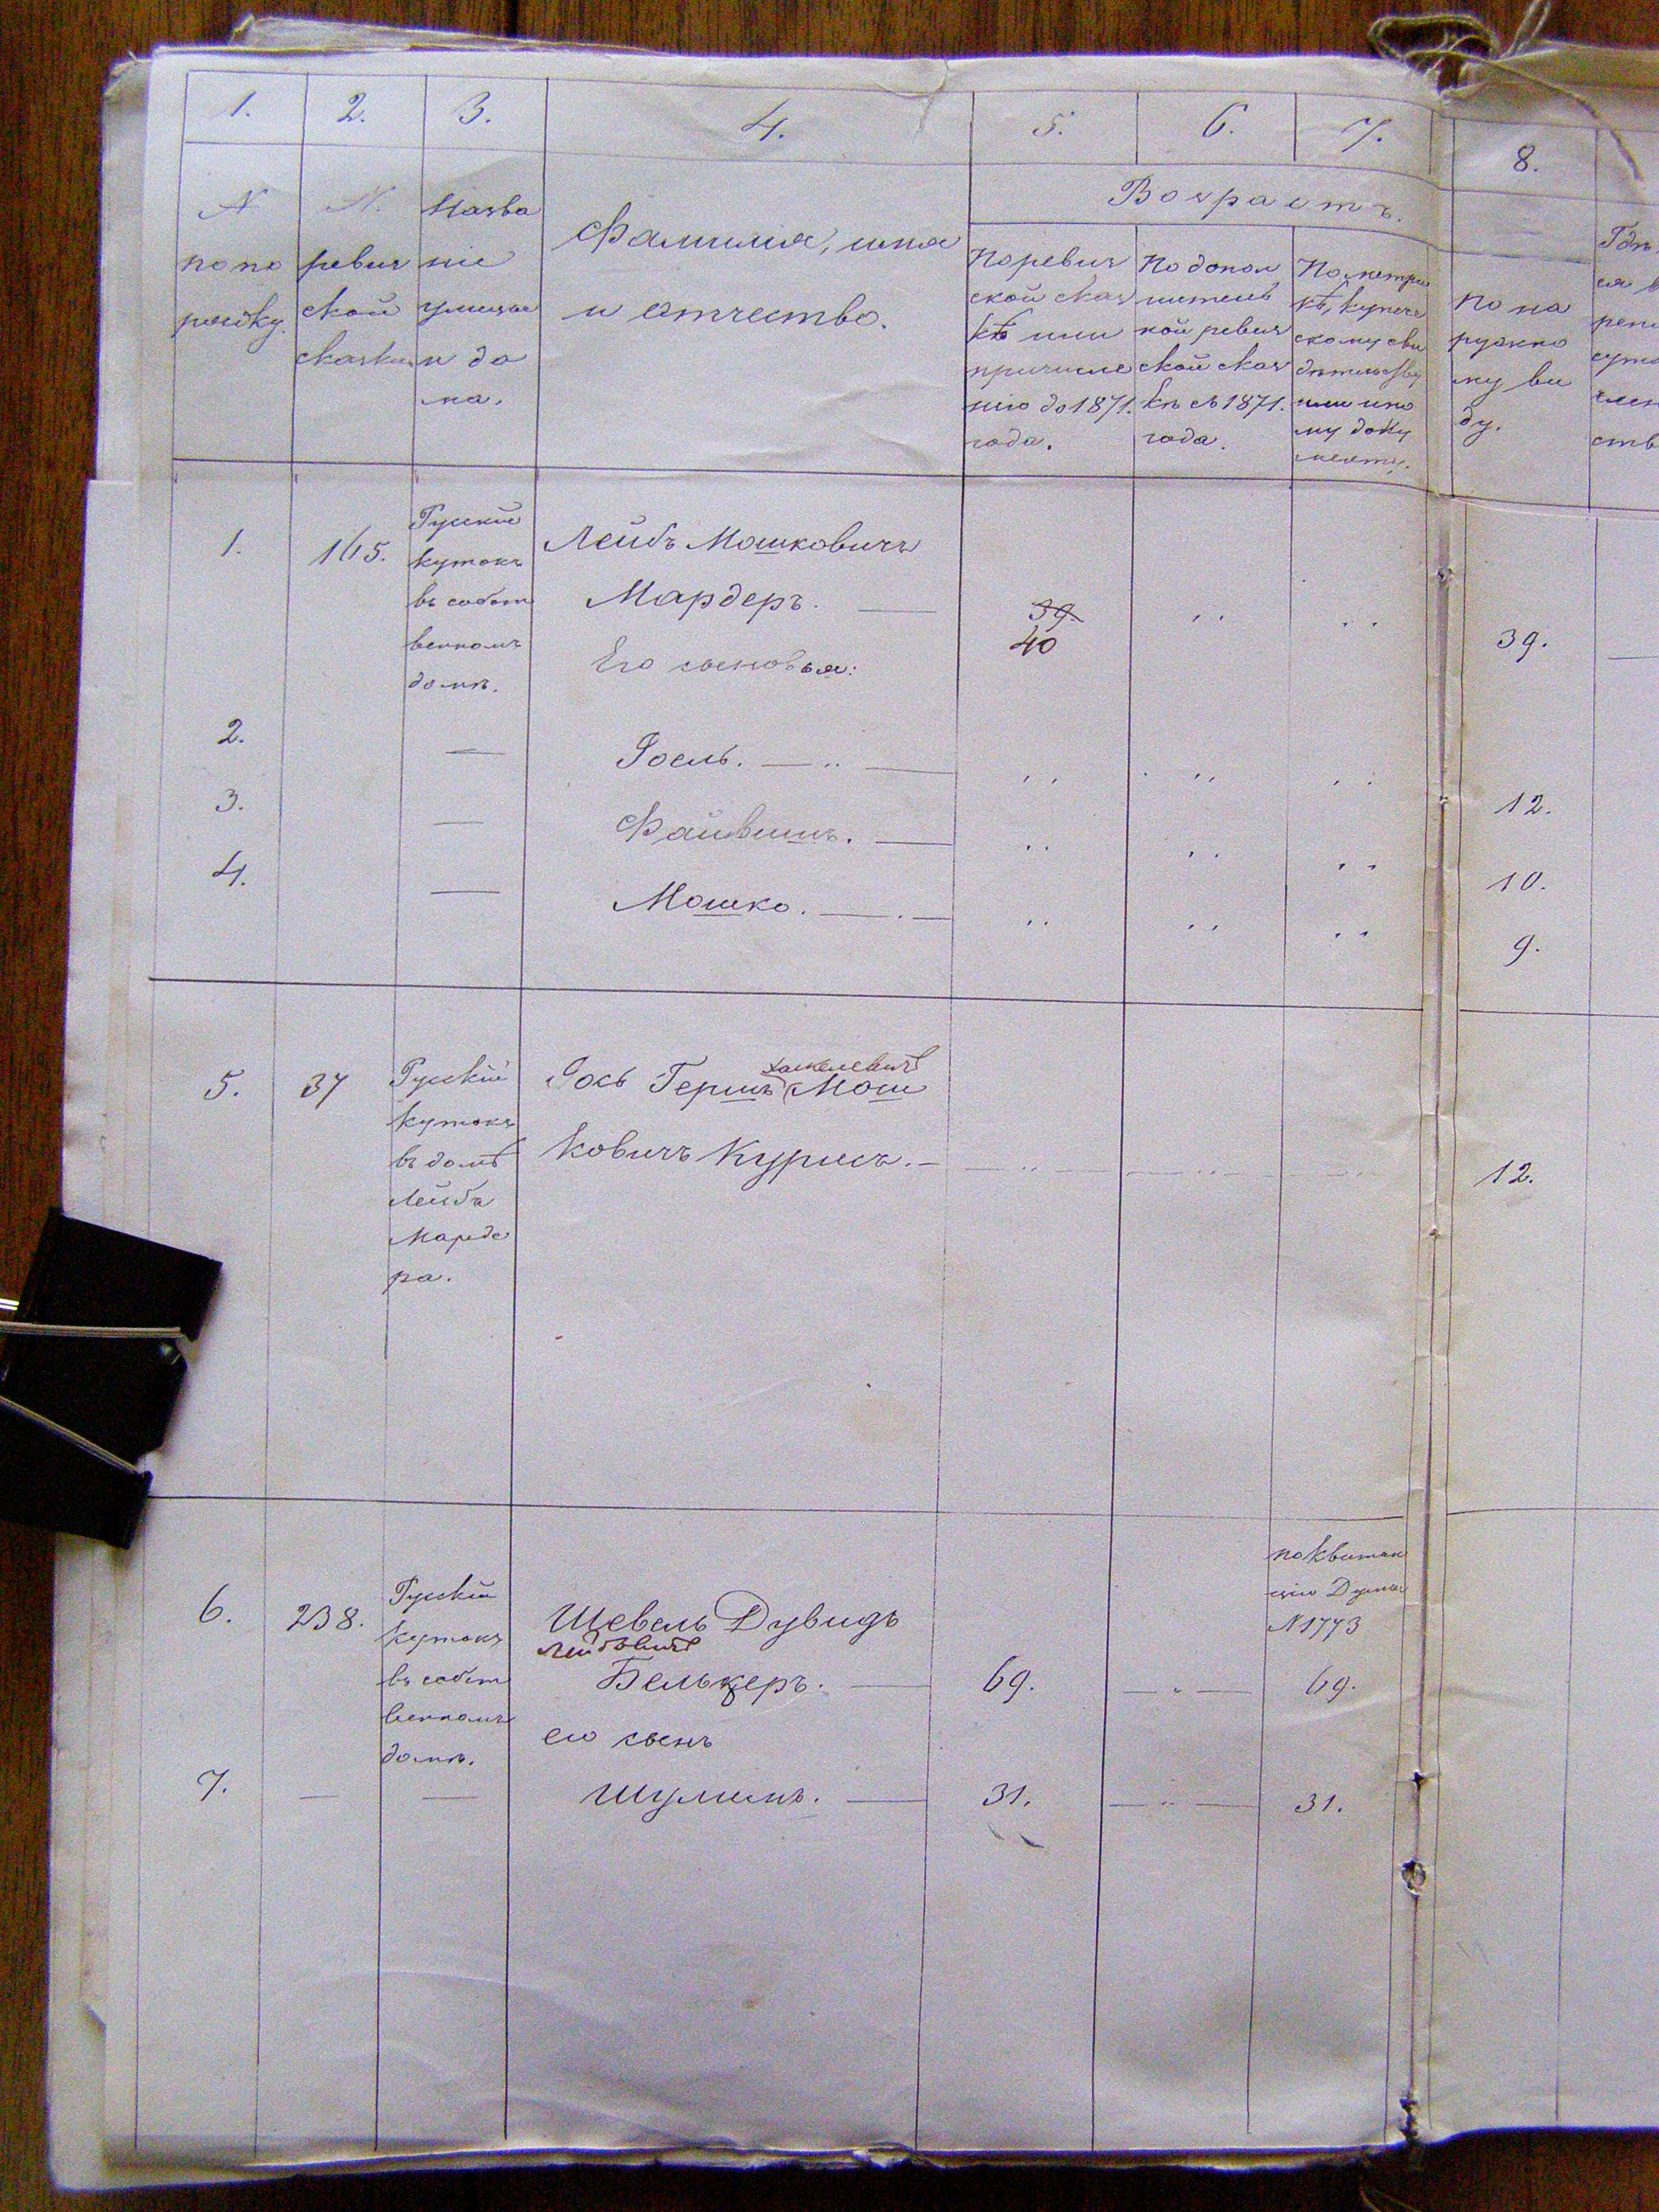 1. 2. 3. 4. 5. 6. 7. 8.
N по по рядку.
N. ревиз ской сказки
Назва ніе улицы и до ма.
Фамилія, имя
и отчество.
Возрастъ.
По ревиз
ской сказ
кѣ или
причисле
нію до 1871.
года.
По допол
нитель
ной ревиз
ской сказ
кѣ съ 1871.
года.
По метри
кѣ, купече
скому сви
дѣтельству
или ино
му доку
менту.
По на
ружно
му ви
ду.
1. 165.
Русскій
кутокъ
въ собст
венномъ
домѣ.
Лейбъ Мошковичъ
Мардеръ. — 39. 40 ,, ,, 39.
Его сыновья:
2. — Іосель. — ,, — ,, ,, ,, 12.
3. — Файвишъ. — ,, ,, ,, 10.
4. — Мошко. — ,, ,, ,, 9.
5. 37
Русскій
кутокъ
въ домѣ
Лейба
Марде
ра.
хаскелевичъ
Іось Гершъ Мош
ковичъ Курисъ. — ,, — ,, — ,, 12.
6. 238.
Русскій
кутокъ
въ собст
венномъ
домѣ.
по квитан
ціи Думы
N 1773
Шевель Дувидъ
Лейбовичъ
Белькеръ. — 69. — „ — 69.
его сынъ
7. — — Шулимъ. — 31. — „ — 31.